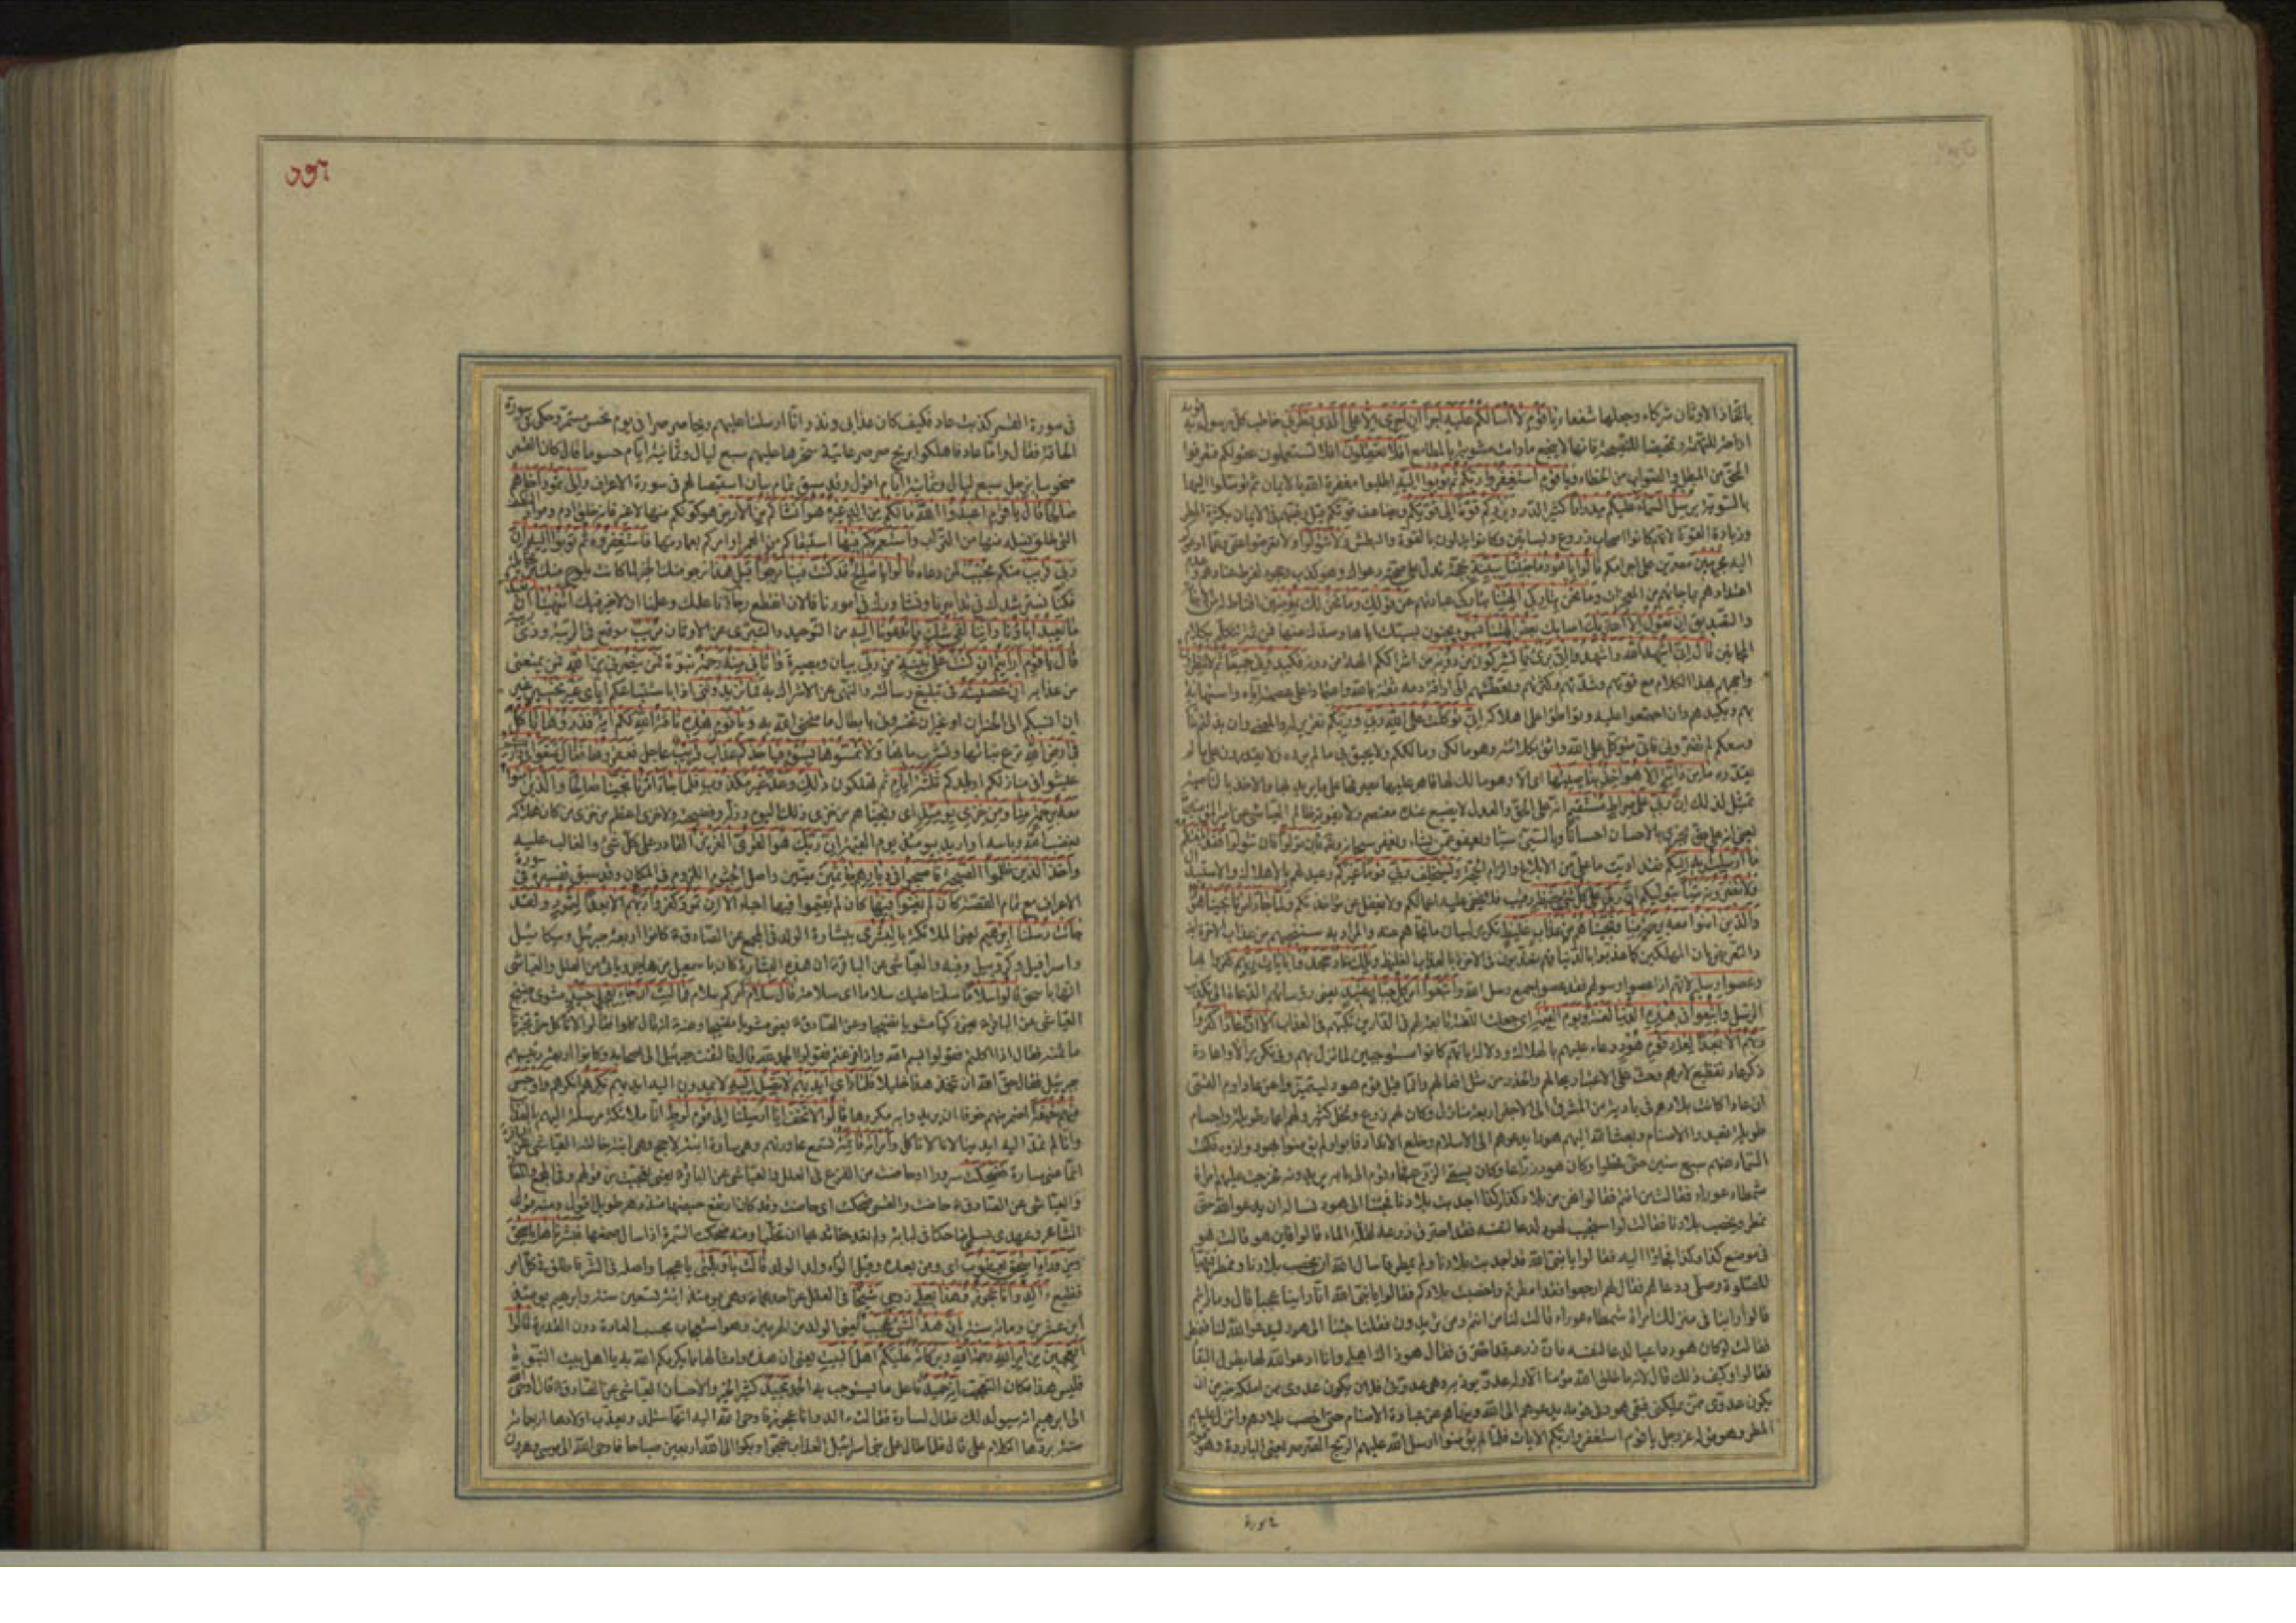 باتخاذ الاوثان شركاء وجعلها شفعاء يا قوم لا اسالكم عليه اجرا ان اجرى الا على الذى فطرنى خاطب كل رسول به قومه
ازاحة للتهمة وتمحيضا للنصيحة فانها لا ينجع مادامت مشوبة بالمطامع افلا تعقلون افلا تستعملون عقولكم فتعرفوا
المحق من المبطل والصواب من الخطاء ويا قوم استغفروا ربكم ثم توبوا اليه اطلبوا مغفرة الله بالايمان ثم توسلوا اليها
بالتوبة يرسل السماء عليكم مدرارا كثير الدر ويزدكم قوة الى قوتكم ويضاعف قوتكم قيل رغبهم فى الايمان بكثرة المطر
وزيادة القوة لانهم كانوا اصحاب زروع وبساتين وكانوا يدلون بالقوة والبطش ولا تتولوا ولا تعرضوا عنى وعما ادعوكم
اليه مجرمين مصرين على اجرامكم قالوا يا هود ما جئتنا ببينة بحجة تدل على صحة دعواك وهو كذب وجحود لفرط عنادهم وعدم
اعتدادهم بما جاءهم من المعجزات وما نحن بتاركى الهتنا بتاركى عبادتهم عن قولك وما نحن لك بمؤمنين اقناط له من الاجابة
والتصديق ان نقول الا اعتريك اصابك بعض الهتنا بسوء بجنون لسبك اياها وصدك عنها فمن ثم تتكلم بكلام
المجانين قال انى اشهد الله واشهدوا انى برئ مما تشركون من دونه من اشراككم الهة من دونه فكيدونى جميعا ثم لا تنظرون
واجههم بهذا الكلام مع قوتهم وشدتهم وكثرتهم وتعطشهم الى اراقة دمه ثقة بالله واعتمادا على عصمته اياه واستهانة
بهم وبكيدهم وان اجتمعوا عليه وتواطؤا على اهلاكه انى توكلت على الله ربى وربكم تقرير له والمعنى وان بذلتم غاية
وسعكم لم تضرونى فانى متوكل على الله واثق بكلائته وهو مالكى ومالككم ولا يحيق بى ما لم يرده ولا تقدرون على ما لم
يقدره ما من دابة الا هو اخذ بناصيتها اى الا وهو مالك لها قاهر عليها يصرفها على ما يريد بها والاخذ بالناصية
تمثيل لذلك ان ربى على صراط مستقيم انه على الحق والعدل لا يضيع عنده معتصم ولا يفوته ظالم العياشى عن امير المؤمنين
يعنى انه على حق يجزى بالاحسان احسانا وبالسيئ سيئا ويعفو عمن يشاء ويغفر سبحانه وتعالى فان تولوا فان تتولوا فقد ابلغتكم
ما ارسلت به اليكم فقد اديت ما على من الابلاغ والزام الحجة ويستخلف ربى قوما غيركم وعيد لهم بالاهلاك والاستبدال
ولا تضرونه شيئا بتوليكم ان ربى على كل شئ حفيظ رقيب فلا يخفى عليه اعمالكم ولا يغفل عن مؤاخذتكم ولما جاء امرنا نجينا هودا
والذين امنوا معه برحمة منا ونجيناهم من عذاب غليظ تكرير لبيان ما نجاهم منه والمراد به تنجيتهم من عذاب الاخرة ايضا
والتعريض بان المهلكين كما عذبوا بالدنيا فهم معذبون فى الاخرة بالعذاب الغليظ وتلك عاد جحدوا بايات ربهم كفروا بها
وعصوا رسله لانهم اذا عصوا رسولهم فقد عصوا جميع رسل الله واتبعوا امر كل جبار عنيد يعنى رؤسائهم الدعاة الى تكذيب
الرسل واتبعوا فى هذه الدنيا لعنة ويوم القيمة اى جعلت اللعنة تابعة لهم فى الدارين تكبهم فى العذاب الا ان عادا كفروا
ربهم الا بعدا لعاد قوم هود دعاء عليهم بالهلاك ودلالة بانهم كانوا مستوجبين لما نزل بهم وفى تكرير الا واعادة
ذكر عاد تفظيع لامرهم وحث على الاعتبار بحالهم والحذر من مثل افعالهم وانما قيل قوم هود ليتميزوا عن عاد ارم القمى
ان عادا كانت بلادهم فى بادية من المشرق الى الاجفر اربعة منازل وكان لهم زرع ونخل كثير ولهم اعمار طويلة واجسام
طويلة فعبدوا الاصنام وبعث الله اليهم هودا يدعوهم الى الاسلام وخلع الانداد فابوا ولم يؤمنوا بهود واذوه فكفت
السماء عنهم سبع سنين حتى قحطوا وكان هود زراعا وكان يسقى الزرع فجاء قوم الى بابه يريدونه فخرجت عليهم امراة
شمطاء عوراء فقالت من انتم فقالوا نحن من بلاد كذا وكذا اجدبت بلادنا فجئنا الى هود نسأله ان يدعو الله حتى
نمطر وتخصب بلادنا فقالت لو استجيب لهود لدعا لنفسه فقد احترق زرعه لقلة الماء قالوا فاين هو قالت هو
فى موضع كذا وكذا فجاؤا اليه فقالوا يا نبى الله قد اجدبت بلادنا ولم نمطر فاسال الله ان يخصب بلادنا ونمطر فتهيأ
للصلوة وصلى ودعا لهم فقال لهم ارجعوا فقد امطرتم واخصبت بلادكم فقالوا يا نبى الله انا راينا عجبا قال وما رايتم
قالوا راينا فى منزلك امراة شمطاء عوراء قالت لنا من انتم ومن تريدون فقلنا جئنا الى هود ليدعو الله لنا فنمطر
فقالت لو كان هود داعيا لدعا لنفسه فان زرعه قد احترق فقال هود ذاك اهلى وانا ادعو الله لها بطول البقاء
فقالوا وكيف ذلك قال لانه ما خلق الله مؤمنا الا وله عدو يوذيه وهى عدوتى فلان يكون عدوى ممن املكه خير من ان
يكون عدوى ممن يملكنى فبقى هود فى قومه يدعوهم الى الله وينهاهم عن عبادة الاصنام حتى اخصب بلادهم وانزل عليهم
المطر وهو قوله عز وجل يا قوم استغفروا ربكم الايات فلما لم يؤمنوا ارسل الله عليهم الريح الصرصر يعنى الباردة وهو قوله
فى سورة
٢٩٥
فى سورة القمر كذبت عاد فكيف كان عذابى ونذر انا ارسلنا عليهم ريحا صرصرا فى يوم نحس مستمر وحكى فى سورة
الحاقة فقال واما عاد فاهلكوا بريح صرصر عاتية سخرها عليهم سبع ليال وثمانية ايام حسوما قال كان القمر
منحوسا بزحل سبع ليال وثمانية ايام اقول وقد سبق تمام بيان استيصالهم فى سورة الاعراف والى ثمود اخاهم
صالحا قال يا قوم اعبدوا الله مالكم من اله غيره هو انشاكم من الارض هو كونكم منها لا غيره فانه خلق ادم ومواد النطف
التى خلق نسله منها من التراب واستعمركم فيها استبقاكم من العمر او امركم بعمارتها فاستغفروه ثم توبوا اليه ان
ربى قريب منكم مجيب لمن دعاه قالوا يا صالح قد كنت فينا مرجوا قبل هذا نرجو منك الخير لما كانت يلوح منك من مخائله
فكنا نسترشدك فى تدابيرنا ونشاورك فى امورنا فالان انقطع رجاؤنا عنك وعلمنا ان لا خير فيك اتنهينا ان نعبد
ما يعبد اباؤنا واننا لفى شك مما تدعونا اليه من التوحيد والتبرى عن الاوثان مريب موقع فى الريبة وذى ريبة
قال يا قوم ارايتم ان كنت على بينة من ربى بيان وبصيرة واتانى منه رحمة نبوة فمن ينصرنى من الله فمن يمنعنى
من عذابه ان عصيته فى تبليغ رسالته والنهى عن الاشراك به فما تزيدوننى اذا باستتباعكم اياى غير تخسير غير
ان انسبكم الى الخسران او غير ان تخسرونى بابطال ما منحنى الله به ويا قوم هذه ناقة الله لكم اية فذروها تاكل
فى ارض الله ترع نباتها وتشرب ماءها ولا تمسوها بسوء فياخذكم عذاب قريب عاجل فعقروها فقال تمتعوا فى داركم
عيشوا فى منازلكم او بلدكم ثلثة ايام ثم تهلكون ذلك وعد غير مكذوب فلما جاء امرنا نجينا صالحا والذين امنوا
معه برحمة منا ومن خزى يومئذ اى ونجيناهم من خزى ذلك اليوم وذله وفضيحته ولا خزى اعظم من خزى من كان هلاكه
بغضب الله وباسه او اريد بيومئذ يوم القيمة ان ربك هو القوى العزيز القادر على كل شئ والغالب عليه
واخذ الذين ظلموا الصيحة فاصبحوا فى ديارهم جاثمين ميتين واصل الجثوم اللزوم فى المكان وقد سبق تفسيره فى سورة
الاعراف مع تمام القصة كان لم يغنوا فيها كان لم يقيموا فيها احياء الا ان ثمود كفروا ربهم الا بعدا لثمود ولقد
جاءت رسلنا ابرهيم يعنى الملائكة بالبشرى ببشارة الولد فى المجمع عن الصادق ع كانوا اربعة جبرئيل وميكائيل
واسرافيل وكروبيل وفيه والعياشى عن الباقر ع ان هذه البشارة كانت باسمعيل من هاجر ويأتى من العلل والعياشى
انها باسحق قالوا سلاما سلمنا عليك سلاما اى سلامة قال سلام امركم سلام فما لبث ان جاء بعجل حنيذ مشوى نضيج
العياشى عن الباقر ع يعنى زكيا مشويا نضيجا وعن الصادق ع يعنى مشويا نضيجا وعنه ع انه قال كلوا فقالوا لا ناكل حتى تخبرنا
ما ثمنه فقال اذا اكلتم فقولوا بسم الله واذا فرغتم فقولوا الحمد لله قال فالتفت جبرئيل الى اصحابه وكانوا اربعة رئيسهم
جبرئيل فقال حق الله ان يتخذ هذا خليلا فلما راى ايديهم لا تصل اليه لا يمدون اليه ايديهم نكرهم انكرهم واوجس
منهم خيفة اضمر منهم خوفا ان يريدوا به مكروها قالوا لا تخف انا ارسلنا الى قوم لوط انا ملائكة مرسلة اليهم بالعذاب
وانا لم نمد اليه ايدينا لانا لا ناكل وامراته قائمة تستمع محاورتهم وهى سارة ابنة لاحج وهى ابنة خالته العياشى عن الباقر
انما عنى سارة فضحكت سرورا او حاضت من الفزع فى العلل والعياشى عن الباقر ع يعنى فعجبت من قولهم وفى المجمع
والعياشى عن الصادق ع حاضت والقمى ضحكت اى حاضت وقد كان ارتفع حيضها منذ دهر طويل اقول ومنه قول
الشاعر وعهدى بسلمى ضاحكا فى لبابة ولم تعد حقا ثديها ان تحلما ومنه ضحكت السمرة اذا سال صمغها فبشرناها باسحق
ومن وراء اسحق يعقوب اى ومن بعده وقيل الوراء ولد الولد قالت يا ويلتى يا عجبا واصله فى الشر فاطلق فى كل امر
فظيع ءالد وانا عجوز وهذا بعلى زوجى شيخا فى العلل عن احدهما ع وهى يومئذ ابنة تسعين سنة وابرهيم يومئذ
ابن عشرين ومائة سنة ان هذا لشئ عجيب يعنى الولد من الهرمين وهو استعجاب بحسب العادة دون القدرة قالوا
اتعجبين من امر الله رحمة الله وبركاته عليكم اهل البيت يعنى ان هذه وامثالها مما يكرمكم الله به يا اهل بيت النبوة
فليس هذا مكان التعجب انه حميد فاعل ما يستوجب به الحمد مجيد كثير الخير والاحسان العياشى عن الصادق ع قال اوحى
الى ابرهيم انه سيولد لك فقال لسارة فقالت ءالد وانا عجوز فاوحى الله اليه انها ستلد ويعذب اولادها اربعمائة
سنة بردها الكلام على قال فلما طال على بنى اسرائيل العذاب ضجوا وبكوا الى الله اربعين صباحا فاوحى الله الى موسى وهرون